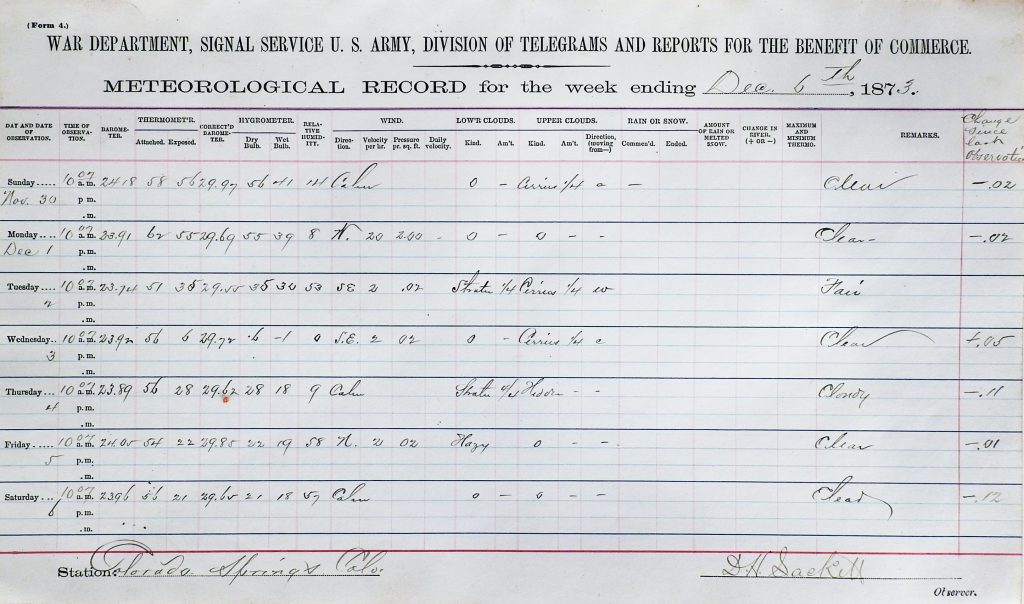 (Form 4.)
WAR DEPARTMENT, SIGNAL SERVICE U. S. ARMY, DIVISION OF TELEGRAMS AND REPORTS FOR THE BENEFIT OF COMMERCE.
METEOROLOGICAL RECORD for the week ending Dec. 6th, 1873.
DAY AND DATE OF OBSERVATION. TIME OF OBSERVATION. BAROMETER. THERMOMET'R. Attached. Exposed. CORRECT'D BAROMETER. HYGROMETER. Dry Bulb. Wet Bulb. RELATIVE HUMIDITY. WIND. Direction. Velocity per hr. Pressure pr. sq. ft. Daily velocity. LOW'R CLOUDS. Kind. Am't. UPPER CLOUDS. Kind. Am't. Direction, (moving from—) RAIN OR SNOW. Commen'd. Ended. AMOUNT OF RAIN OR MELTED SNOW. CHANGE IN RIVER. (+ OR —) MAXIMUM AND MINIMUM THERMO. REMARKS. Change since last observation
Sunday..... 10 07 a.m. 24.18 58 56 29.97 56 41 14 Calm 0 – Cirrus 1/4 – Clear –.02
Nov. 30 p. m.
.m.
Monday.... 10 07 a.m. 23.91 62 55 29.69 55 39 8 N. 20 2.00 - 0 – 0 – – Clear –.02
Dec 1 p.m.
.m.
Tuesday.... 10 07 a.m. 23.74 51 35 29.55 35 30 53 SE 2 .02 Stratu 1/4 Cirrus 1/4 w Fair
2 p.m.
.m.
Wednesday.. 10 07 a.m. 23.92 56 6 29.72 .6 –1 0 S.E. 2 02 0 – Cirrus 1/4 Clear +.05
3 p.m.
.m.
Thursday... 10 07 a.m. 23.89 56 28 29.62 28 18 9 Calm Stratu Hidden – – Cloudy –.11
4 p.m.
.m.
Friday ..... 10 07 a.m. 24.05 54 22 29.85 22 19 58 N. 2 02 Hazy 0 – – Clear –.01
5 p.m.
.m.
Saturday... 10 07 a.m. 23.96 56 21 29.65 21 18 57 Calm 0 – 0 – Clear –.12
6 p.m.
.m.
Station: Colorado Springs Colo. D.H. Sackett
Observer.